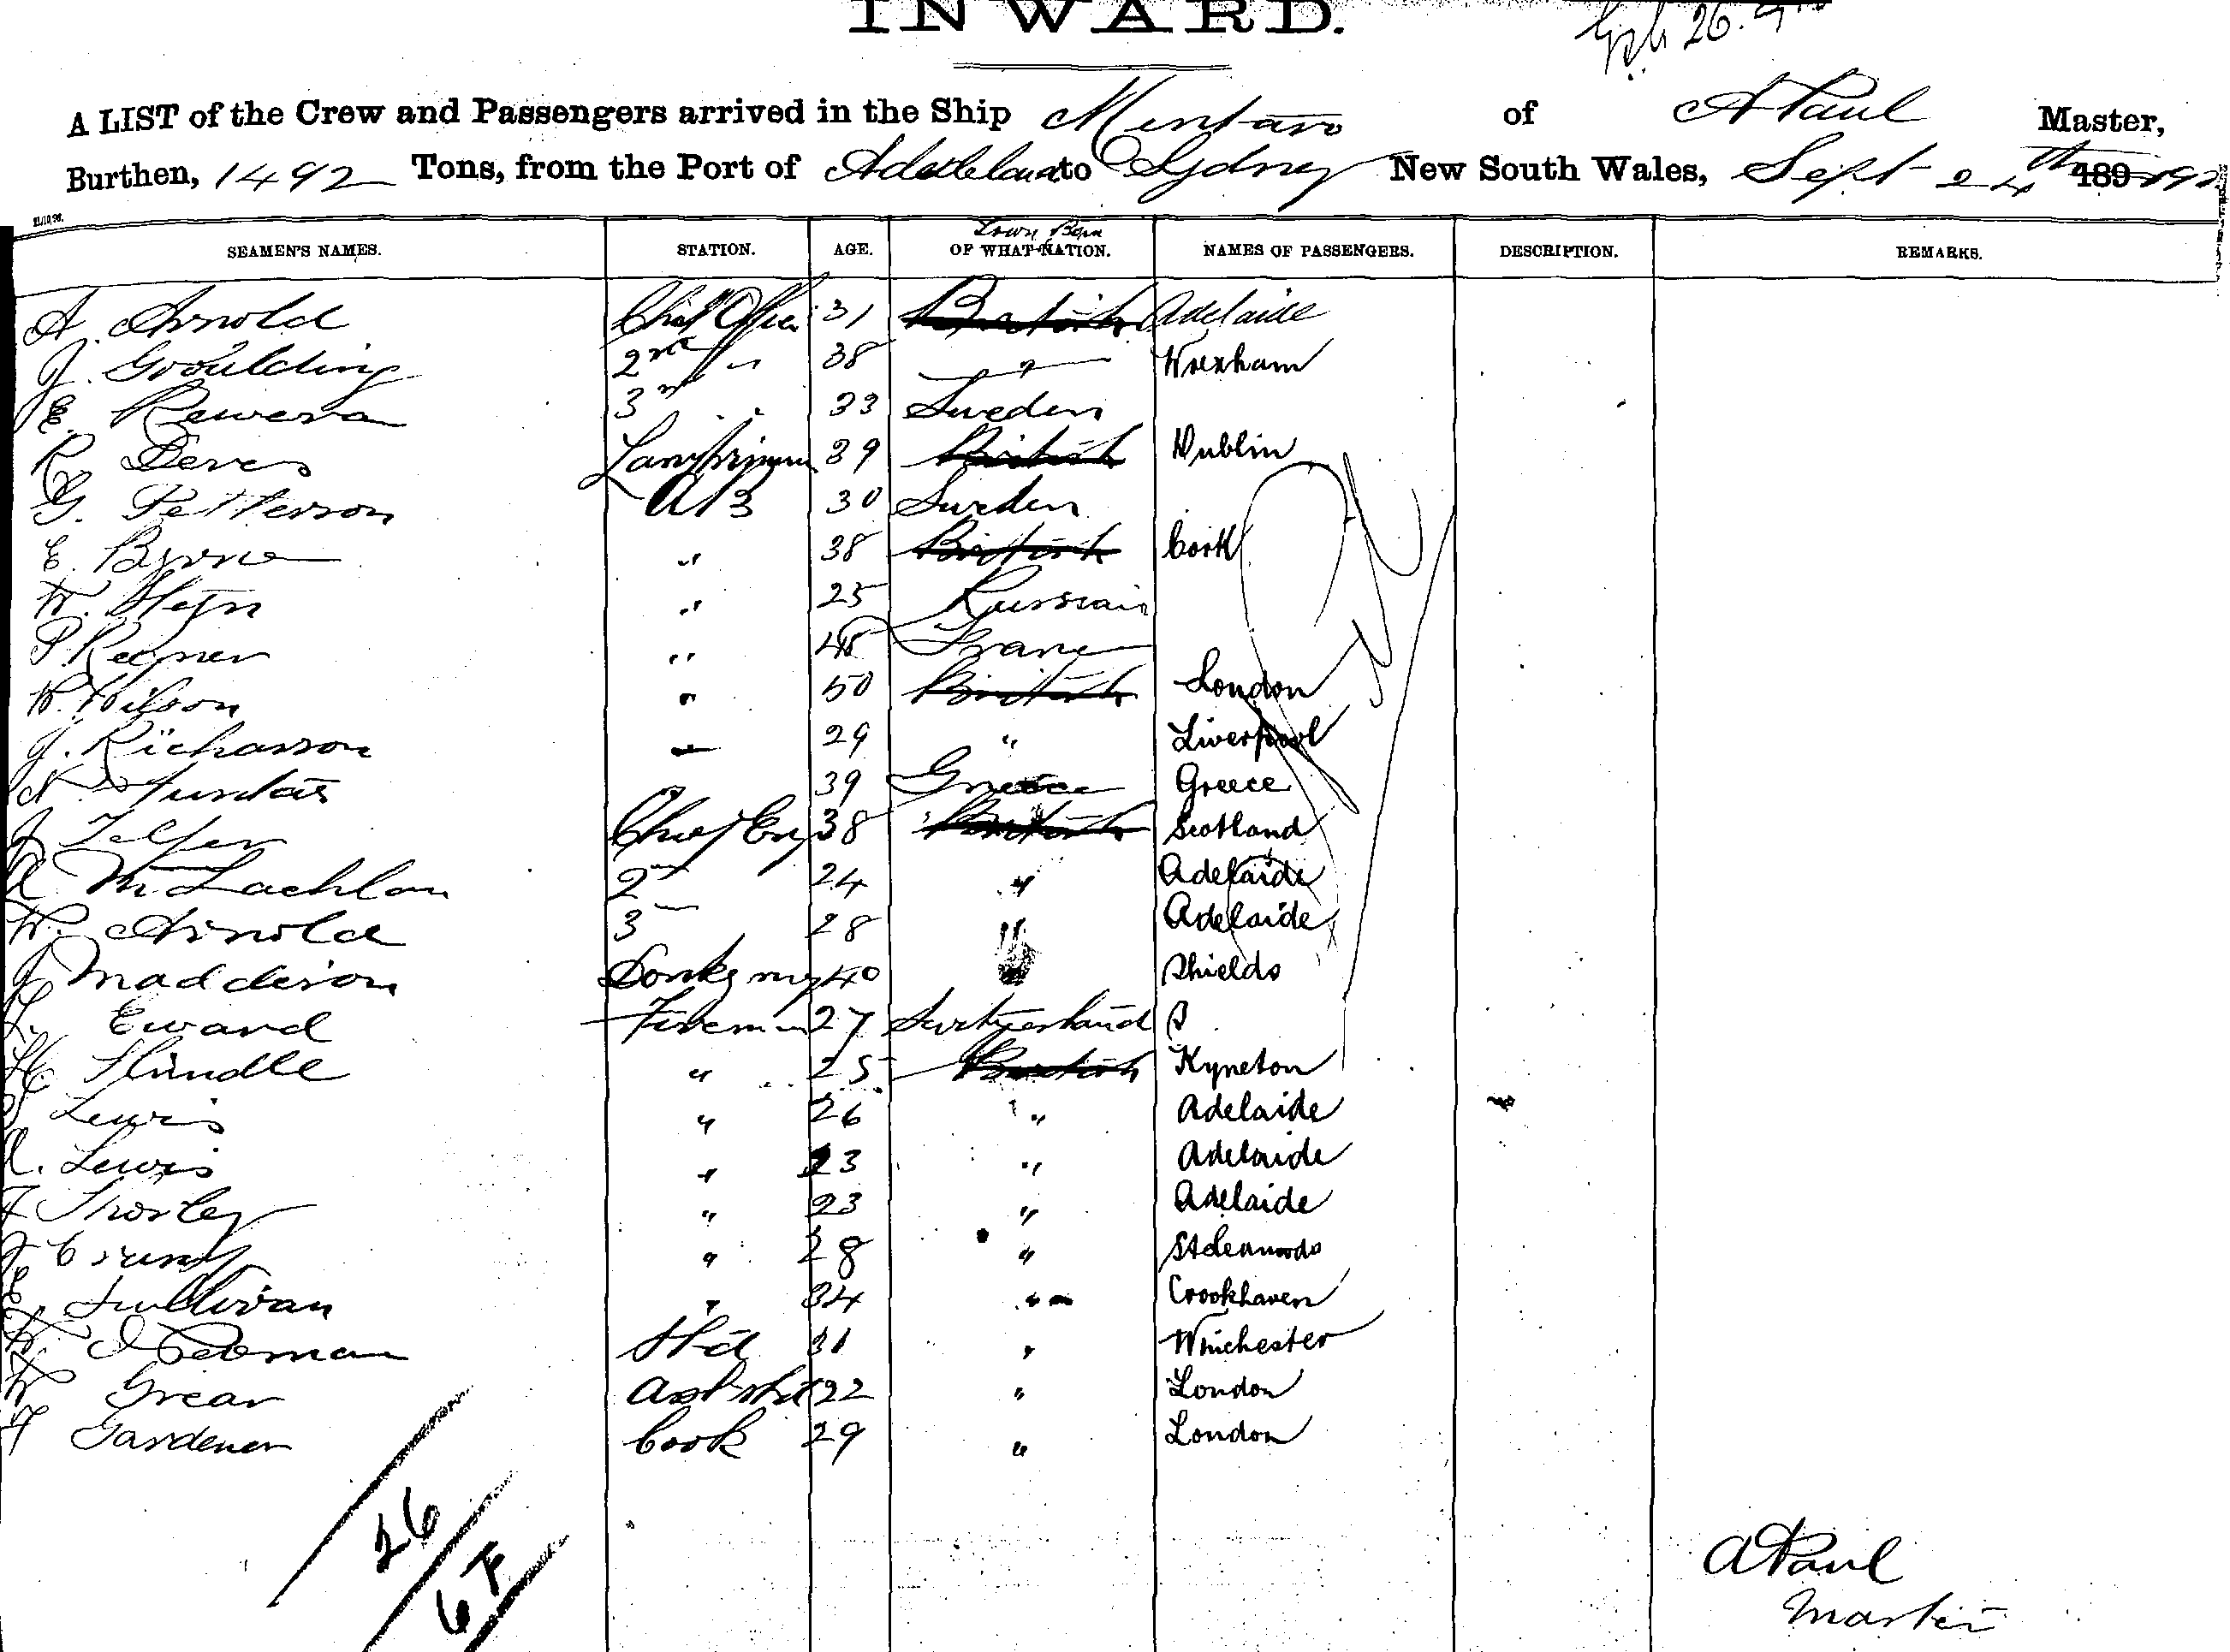 INWARD.
26.9
A LIST of the Crew and Passengers arrived in the Ship Mintaro of A Paul Master,
Burthen, 1492 Tons, from the Port of Adelaide to Sydney New South Wales, Sept 24th 189
Town Born
SEAMEN'S NAMES. STATION. AGE. OF WHAT NATION. NAMES OF PASSENGERS. DESCRIPTION. REMARKS.
A. Arnold Chief Officer 31 British Adelaide
J. Goulding 2nd " 38 " Wrexham
E. 3rd " 33 Sweden
R. Lamptrimmer 39 British Dublin
G. Petterson AB 30 Sweden
E. Byrne " 38 British Cork
W. " 25 Russian
P. Regner " 48 France
W. Wilson " 50 British London
J. Richasson 29 " Liverpool
39 Greece Greece
J Telfer Chief Eng 38 British Scotland
A McLachlan 2nd 24 " Adelaide
W. Arnold 3 28 " Adelaide
J Maddison Donkeyman 40 " Shields
L. Eward Fireman 27 Switzerland
H. " 25 British Kyneton
Lewis " 26 " Adelaide
A. Lewis " 23 " Adelaide
Thorley " 23 " Adelaide
J " 28 " St Leonards
E Sullivan " 34 " Crookhaven
W. Std 31 " Winchester
W Grear Asst Std 22 " London
F Gardener Cook 29 " London
26
6 F
A Paul
Master